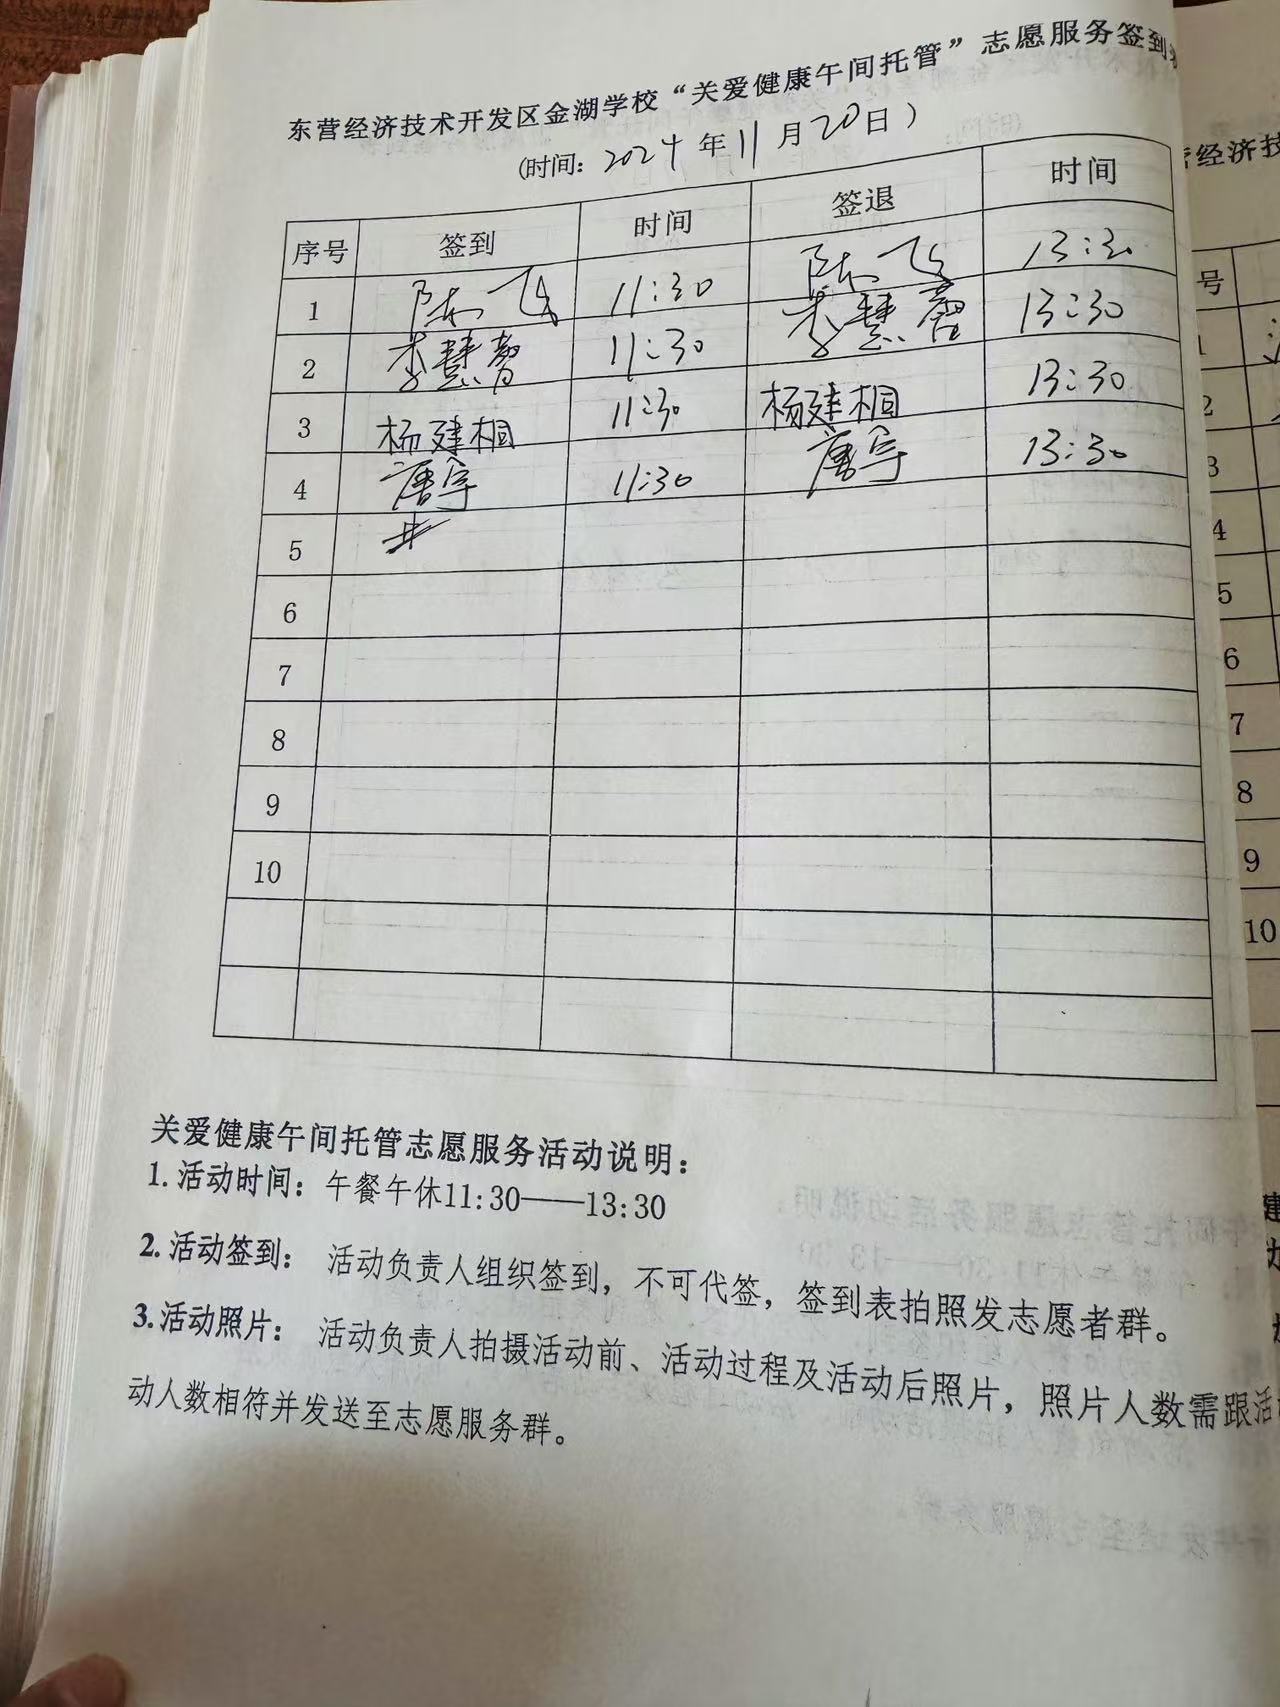 东营经济技术开发区金湖学校“关爱健康午间托管”志愿服务签到
(时间: 2024年11月20日)
序号 签到 时间 签退 时间
1 陈飞 11:30 陈飞 13:30
2 李慧馨 11:30 李慧馨 13:30
3 杨建桐 11:30 杨建桐 13:30
4 唐宇 11:30 唐宇 13:30
5
6
7
8
9
10
关爱健康午间托管志愿服务活动说明:
1.活动时间: 午餐午休11:30——13:30
2.活动签到: 活动负责人组织签到，不可代签，签到表拍照发志愿者群。
3.活动照片: 活动负责人拍摄活动前、活动过程及活动后照片，照片人数需跟活
动人数相符并发送至志愿服务群。
营经济技
号
1
2
3
4
5
6
7
8
9
10